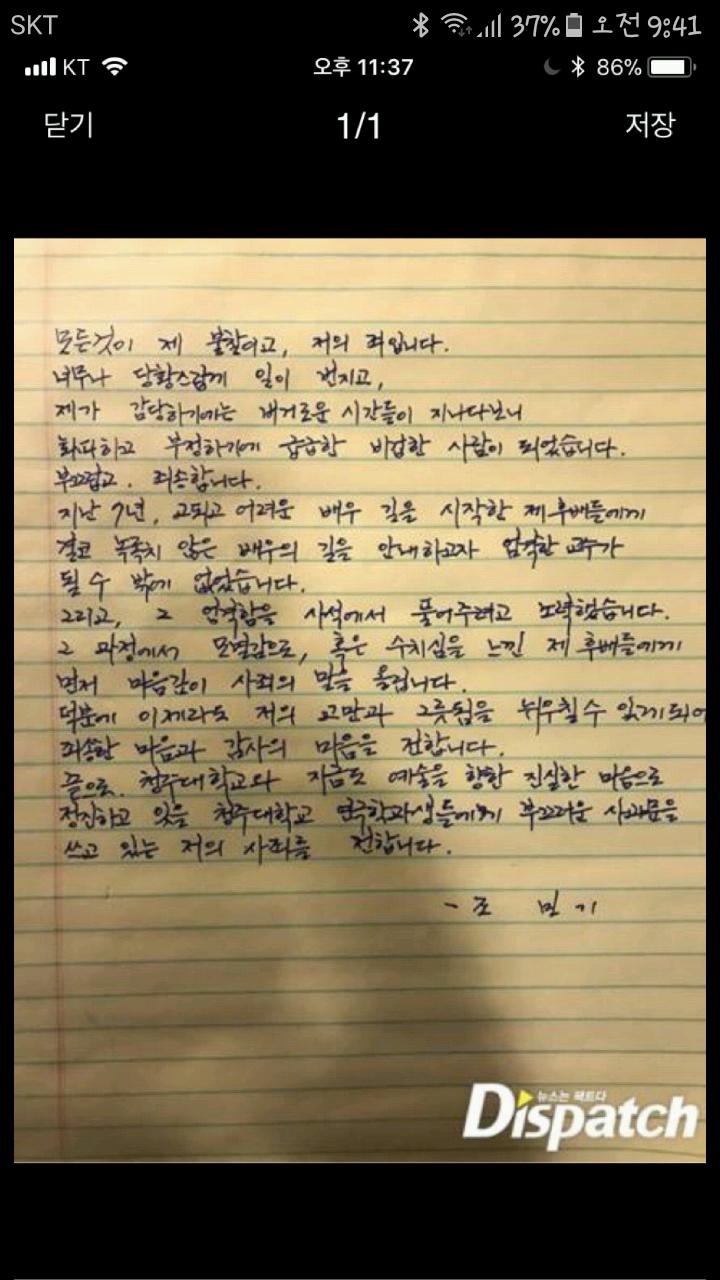 SKT 37% 오전 9:41
KT 오후 11:37 86%
닫기 1/1 저장
모든것이 제 불찰이고, 저의 죄입니다.
너무나 당황스럽게 일이 번지고,
제가 감당하기에는 버거로운 시간들이 지나다보니
회피하고 부정하기에 급급한 비겁한 사람이 되었습니다.
부끄럽고. 죄송합니다.
지난 7년, 고되고 어려운 배우 길을 시작한 제 후배들에게
결코 녹록치 않은 배우의 길을 안내하고자 엄격한 교수가
될 수 밖에 없었습니다.
그리고, 그 엄격함을 사석에서 풀어주려고 노력했습니다.
그 과정에서 모멸감으로, 혹은 수치심을 느낀 제 후배들에게
먼저 마음깊이 사죄의 말을 올립니다.
덕분에 이제라도 저의 교만과 그릇됨을 뉘우칠 수 있게 되어
죄송한 마음과 감사의 마음을 전합니다.
끝으로. 청주대학교와 지금도 예술을 향한 진실한 마음으로
정진하고 있을 청주대학교 연극학과생들에게 부끄러운 사과문을
쓰고 있는 저의 사죄를 전합니다.
- 조 민 기
뉴스는 팩트다
Dispatch